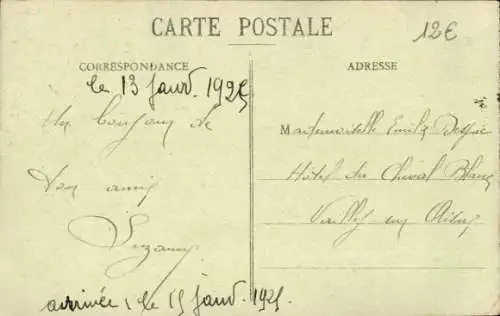 CARTE POSTALE
12€
CORRESPONDANCE
le 13 Janv. 1925
Un bonjour de
ton amie
Suzanne
arrivée : le 15 Janv. 1925.
ADRESSE
Mademoiselle Emilie
Hôtel du Cheval Blanc
Vailly sur Aisne